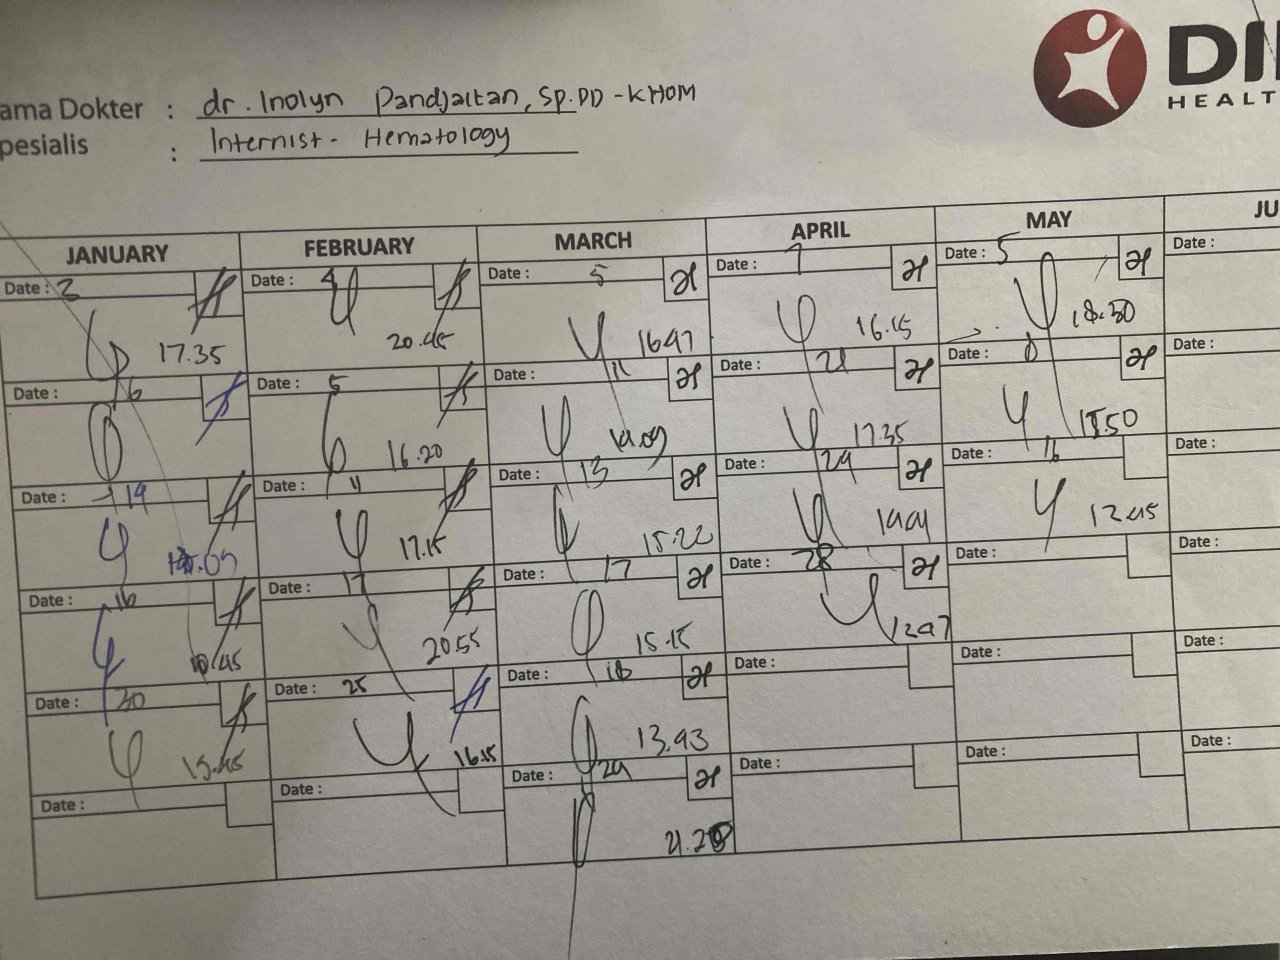 ama Dokter : dr. Inolyn Pandjaitan, Sp.PD-KHOM
pesialis : Internist - Hematology
DI
HEALT
JANUARY FEBRUARY MARCH APRIL MAY JU
Date : 2 Date : 4 Date : 5 Date : 7 Date : 5 Date :
17.35 20.45 1647 16.15 18.30
Date : 6 Date : 5 Date : 11 Date : 21 Date : 8 Date :
16.20 17.35 50
Date : 14 Date : 11 Date : 13 Date : 24 Date : 16 Date :
17.15 15.22 1441 12.45
Date : 16 Date : 17 Date : 17 Date : 28 Date : Date :
.45 20.55 15.15 1247
Date : 30 Date : 25 Date : 18 Date : Date : Date :
15.45 16.15 13.43
Date : Date : Date : 24 Date : Date : Date :
21.20